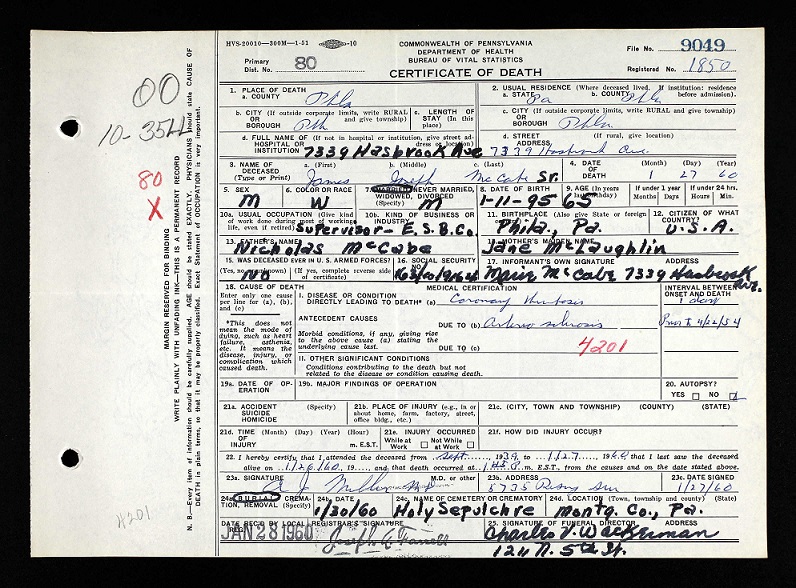 HVS-20010—300M—1-51 -10
COMMONWEALTH OF PENNSYLVANIA
DEPARTMENT OF HEALTH
BUREAU OF VITAL STATISTICS
CERTIFICATE OF DEATH
File No. 9049
Registered No. 1850
Primary
Dist. No. 80
00
10-
80
X
4201
MARGIN RESERVED FOR BINDING
WRITE PLAINLY WITH UNFADING INK—THIS IS A PERMANENT RECORD
N. B.—Every item of information should be carefully supplied. AGE should be stated EXACTLY. PHYSICIANS should state CAUSE OF
DEATH in plain terms, so that it may be properly classified. Exact Statement of OCCUPATION is very important.
1. PLACE OF DEATH
a. COUNTY Phila
2. USUAL RESIDENCE (Where deceased lived. If institution: residence before admission).
a. STATE Pa b. COUNTY Phila
b. CITY (If outside corporate limits, write RURAL and give township)
OR
BOROUGH
c. LENGTH OF
STAY (In this
place)
c. CITY (If outside corporate limits, write RURAL and give township)
OR
BOROUGH Phila
d. FULL NAME OF (If not in hospital or institution, give street address or location)
HOSPITAL OR
INSTITUTION 7339 Hasbrook Ave
d. STREET (If rural, give location)
ADDRESS 7339 Hasbrook Ave.
3. NAME OF
DECEASED
(Type or Print)
a. (First) James b. (Middle) Joseph c. (Last) McCabe Sr.
4. DATE
OF
DEATH
(Month) (Day) (Year)
1 27 60
5. SEX M
6. COLOR OR RACE W
7. MARRIED, NEVER MARRIED,
WIDOWED, DIVORCED (Specify) M
8. DATE OF BIRTH 1-11-95
9. AGE (In years 65
If under 1 year
Months Days
If under 24 hrs.
Hours Min.
10a. USUAL OCCUPATION (Give kind
of work done during most of working
life, even if retired) Supervisor-
10b. KIND OF BUSINESS OR
INDUSTRY E.S.B.Co.
11. BIRTHPLACE (Also give State or foreign
Phila., Pa.
12. CITIZEN OF WHAT
COUNTRY?
U.S.A.
13. FATHER'S NAME
Nicholas McCabe
MOTHER'S MAIDEN NAME
Jane McLoughlin
15. WAS DECEASED EVER IN U.S. ARMED FORCES?
(Yes, no, or unknown) (If yes, complete reverse side
of certificate)
NO
16. SOCIAL SECURITY
NO.
17. INFORMANT'S OWN SIGNATURE ADDRESS
Marie McCabe 7339 Hasbrook Ave.
18. CAUSE OF DEATH
Enter only one cause
per line for (a), (b),
and (c)
MEDICAL CERTIFICATION
INTERVAL BETWEEN
ONSET AND DEATH
I. DISEASE OR CONDITION
DIRECTLY LEADING TO DEATH* (a) Coronary thrombosis 1 day
*This does not
mean the mode of
dying, such as heart
failure, asthenia,
etc. It means the
disease, injury, or
complication which
caused death.
ANTECEDENT CAUSES
Morbid conditions, if any, giving rise
to the above cause (a) stating the
underlying cause last.
DUE TO (b) Arterio sclerosis Prior to 4/22/54
DUE TO (c)
4201
II. OTHER SIGNIFICANT CONDITIONS
Conditions contributing to the death but not
related to the disease or condition causing death.
19a. DATE OF OP-
ERATION
19b. MAJOR FINDINGS OF OPERATION
20. AUTOPSY?
YES NO
21a. ACCIDENT (Specify)
SUICIDE
HOMICIDE
21b. PLACE OF INJURY (e.g., in or
about home, farm, factory, street,
office bldg., etc.)
21c. (CITY, TOWN AND TOWNSHIP) (COUNTY) (STATE)
21d. TIME (Month) (Day) (Year) (Hour)
OF
INJURY m. E.S.T.
21e. INJURY OCCURRED
While at Work Not While at Work
21f. HOW DID INJURY OCCUR?
22. I hereby certify that I attended the deceased from Sept. 1939 to 1/27, 1960 that I last saw the deceased
alive on 1/26/60, 19...., and that death occurred at m. E.S.T., from the causes and on the date stated above.
23a. SIGNATURE M.D. or other
Miller MD
23b. ADDRESS
5735
23c. DATE SIGNED
1/27/60
24a. BURIAL, CREMA-
TION, REMOVAL (Specify)
24b. DATE
1/30/60
24c. NAME OF CEMETERY OR CREMATORY
Holy Sepulchre
24d. LOCATION (Town, township and county) (State)
Montg. Co., Pa.
DATE REC'D BY LOCAL
REG.
JAN 28 1960
REGISTRAR'S SIGNATURE
Joseph A. Farrell
25. SIGNATURE OF FUNERAL DIRECTOR ADDRESS
Charles V. Wackerman
1211 N. 5th St.